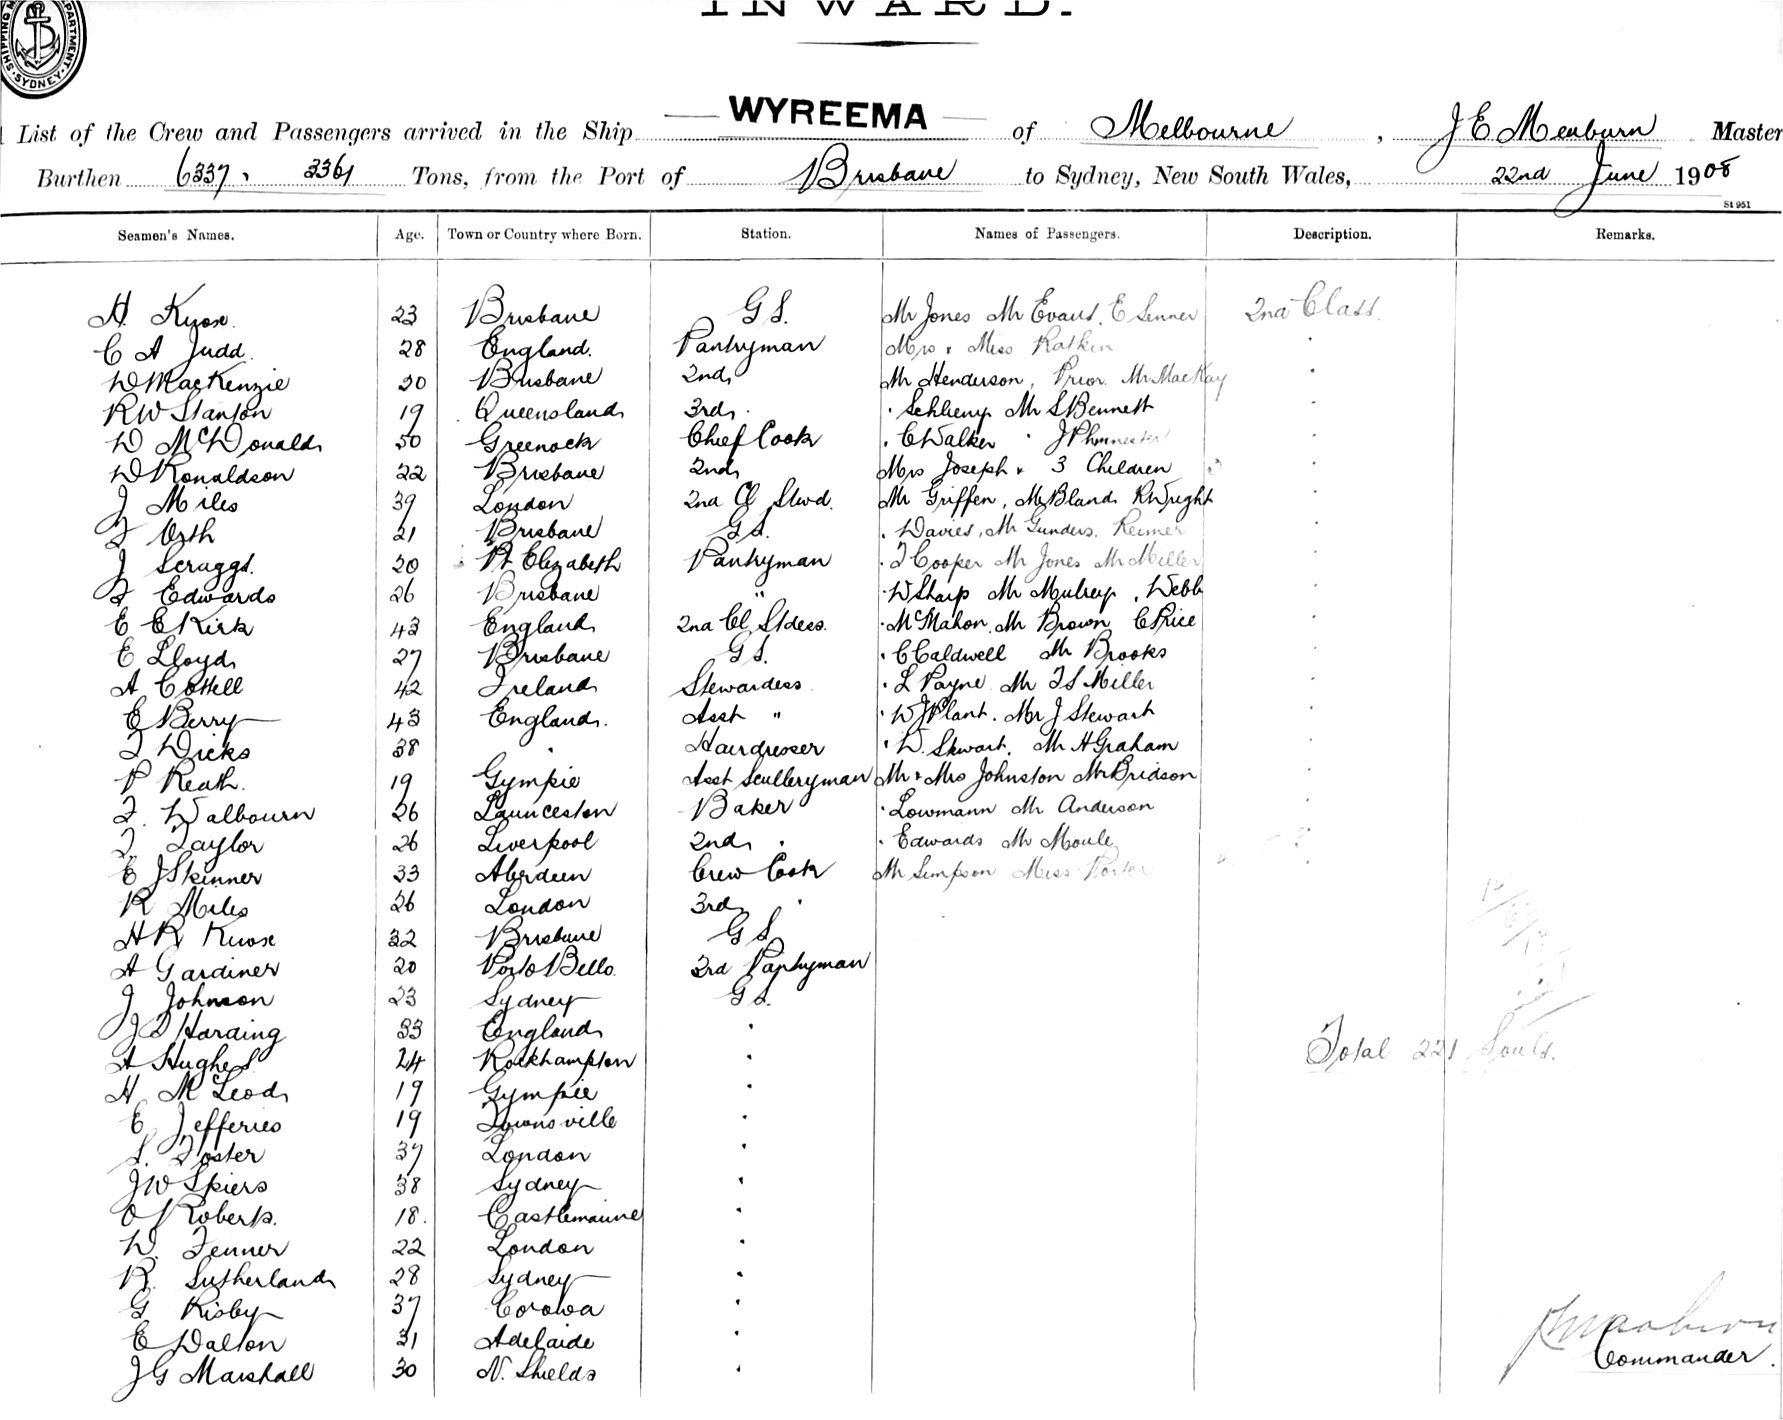 INWARD.
SYDNEY
WYREEMA
List of the Crew and Passengers arrived in the Ship of Melbourne, J E Meaburn Master
Burthen 6337, 3361 Tons, from the Port of Brisbane to Sydney, New South Wales, 22nd June 1908
St 951
Seamen's Names. Age. Town or Country where Born. Station. Names of Passengers. Description. Remarks.
H. Knox. 23 Brisbane G S. Mr Jones Mr Evans, E Senner 2nd Class.
C A Judd. 28 England. Pantryman Mrs & Miss Ratkin "
W MacKenzie 30 Brisbane 2nd, Mr Henderson, Prior. Mr MacKay "
R W Stanton 19 Queensland, 3rd, " Schlieny Mr S Bennett "
W McDonald, 50 Greenock Chief Cook " C Walker " J "
W Ronaldson 22 Brisbane 2nd, Mrs Joseph & 3 Children "
J Miles 39 London 2nd Cl Stwd. Mr Griffen, Mr Bland, R Wright "
F Orth 21 Brisbane G S. " Davies, Mr Gunders. Reimer "
J Scraggs. 20 Pt Elizabeth Pantryman " T Cooper Mr Jones Mr Miller "
F Edwards 26 Brisbane " " W Sharp Mr Mulrey, Webb "
E E Kirk 43 England, 2nd Cl Stdess. " McMahon, Mr Brown C Price "
E Lloyd, 27 Brisbane G S. " C Caldwell Mr Brooks "
A Cottell 42 Ireland, Stewardess. " L Payne Mr T S Miller "
E Berry 43 England. Asst " " W J Plant. Mr J Stewart "
F Dicks 38 " Hairdresser " W. Stewart. Mr H Graham "
P Reath. 19 Gympie Asst Sculleryman Mr & Mrs Johnston Mr Bridson "
F. Walbourn 26 Launceston Baker " Lowmann Mr Anderson "
F. Taylor 26 Liverpool 2nd, " " Edwards Mr Moule "
E J Skinner 33 Aberdeen Crew Cook Mr Simpson Miss Porter
R Miles 26 London 3rd, "
H R Knox 32 Brisbane G S
A Gardiner 20 Porto Bello. 3rd Pantryman
J Johnson 23 Sydney G S.
J D Harding 33 England, "
A Hughes 24 Rockhampton " Total 221 Souls.
H McLeod, 19 Gympie "
E Jefferies 19 Townsville "
S. Foster 37 London "
J W Spiers 38 Sydney "
O Roberts. 18. Castlemaine "
W. Fenner 22 London "
R. Sutherland, 28 Sydney "
G Risby 37 Corowa "
E Dalton 31 Adelaide "
J G Marshall 30 N. Shields "
Commander.